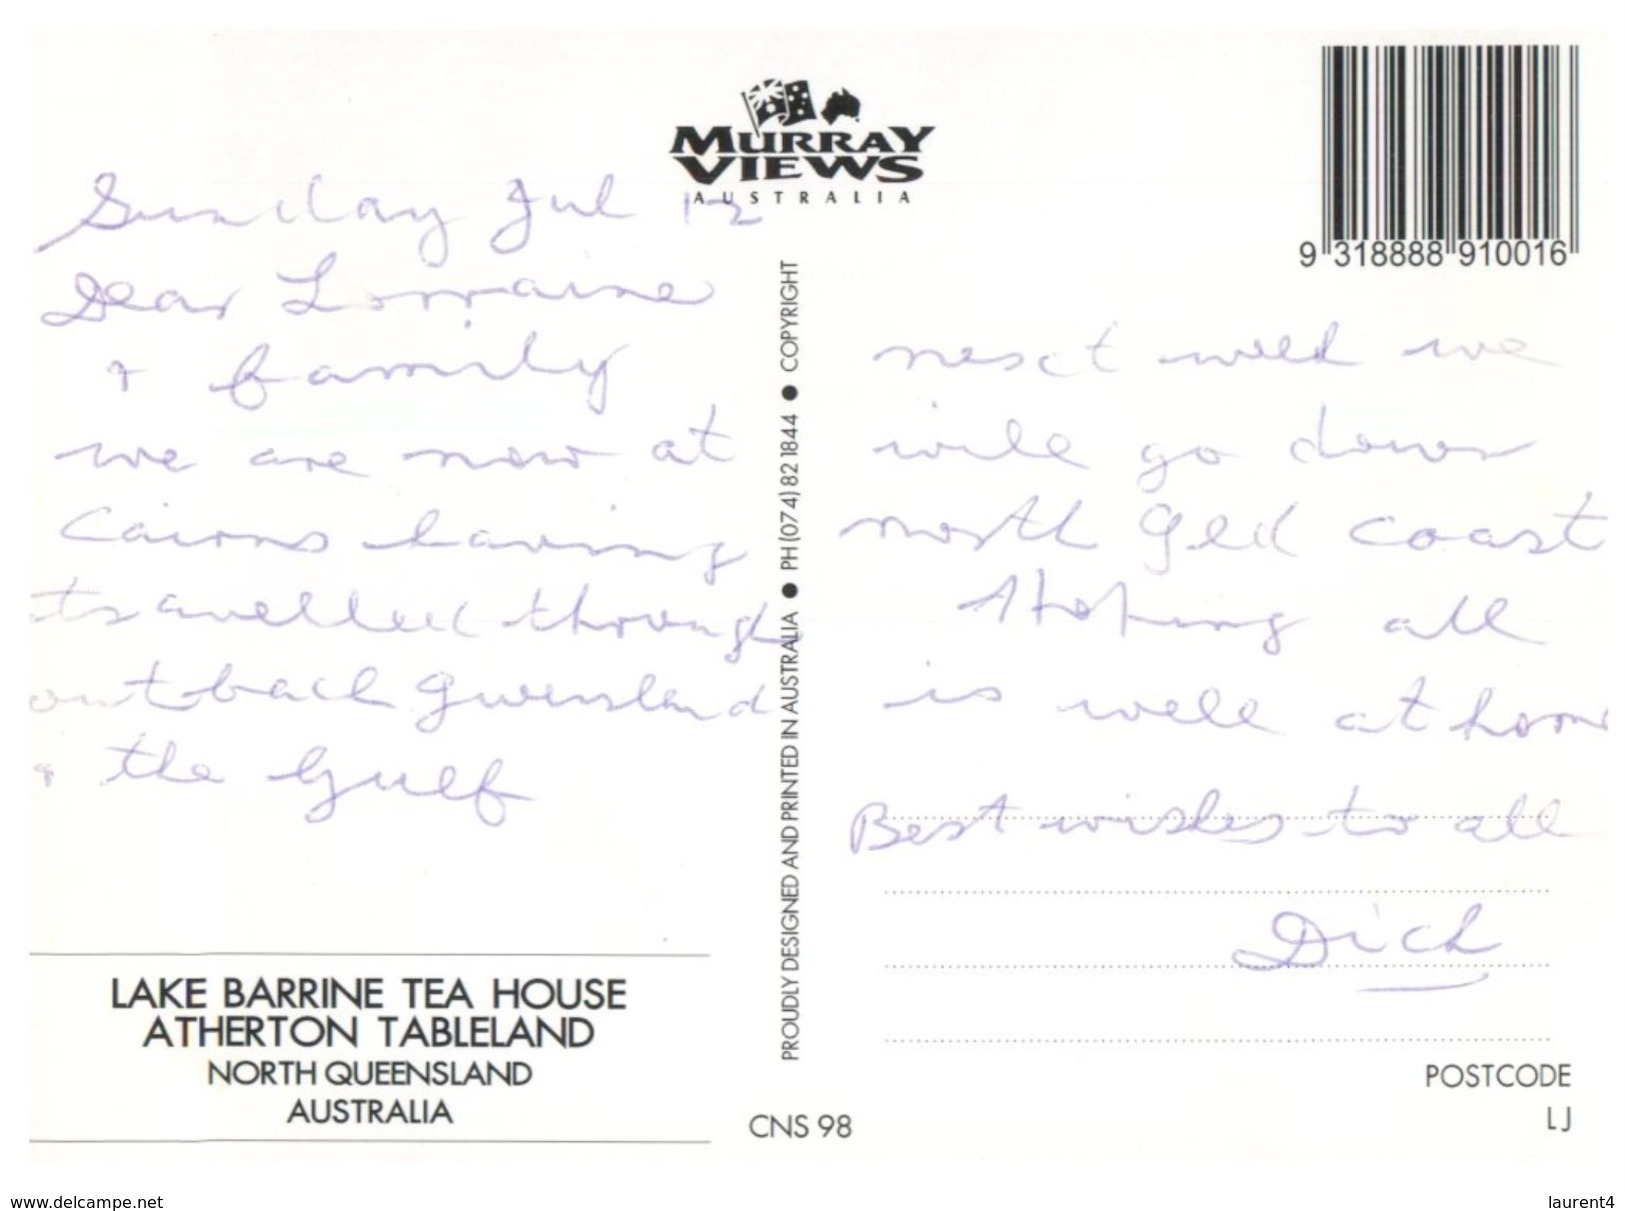 MURRAY
VIEWS
AUSTRALIA
9 318888 910016
Sunday Jul 12
Dear Lorraine
+ family
we are now at
Cairns having
travelled through
outback Queensland
+ the Gulf
next week we
will go down
north Qld coast
Hoping all
is well at hom
Best wishes to all
Dick
PROUDLY DESIGNED AND PRINTED IN AUSTRALIA ● PH (074) 82 1844 ● COPYRIGHT
LAKE BARRINE TEA HOUSE
ATHERTON TABLELAND
NORTH QUEENSLAND
AUSTRALIA
CNS 98
POSTCODE
LJ
www.delcampe.net
laurent4